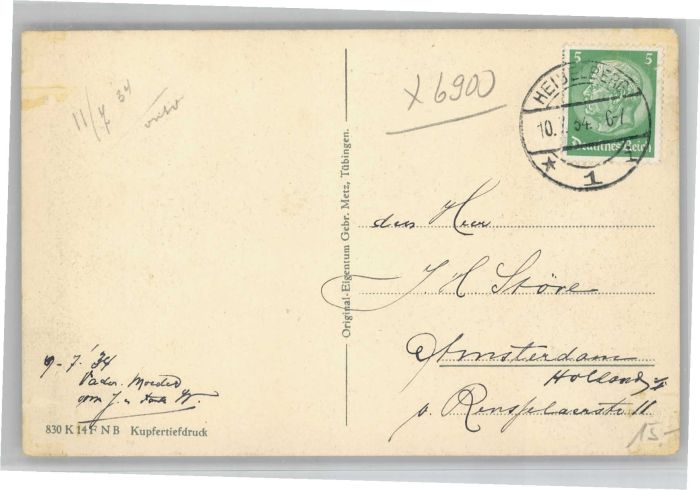 11/7 34
X 6900
5 5
Deutsches Reich
HEIDELBERG
10.7.34. 6-7
1
Original-Eigentum Gebr. Metz, Tübingen.
den Heer
J H Störe
Amsterdam
Holland
v. Rensselaerstr 11
9-7.'34
Vader. Moeder
15.-
830 K 14 F N B Kupfertiefdruck